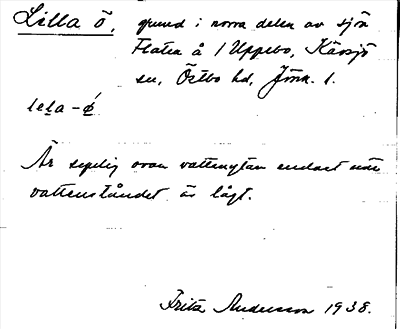 Lilla ö, grund i norra delen av sjön
Flaten å 1 Uppebo, Kävsjö
sn, Östbo hd, Jönk. l.
lɩla-ǿ
Är synlig ovan vattenytan endast när
vattenståndet är lågt.
Fritz Andersson 1938.